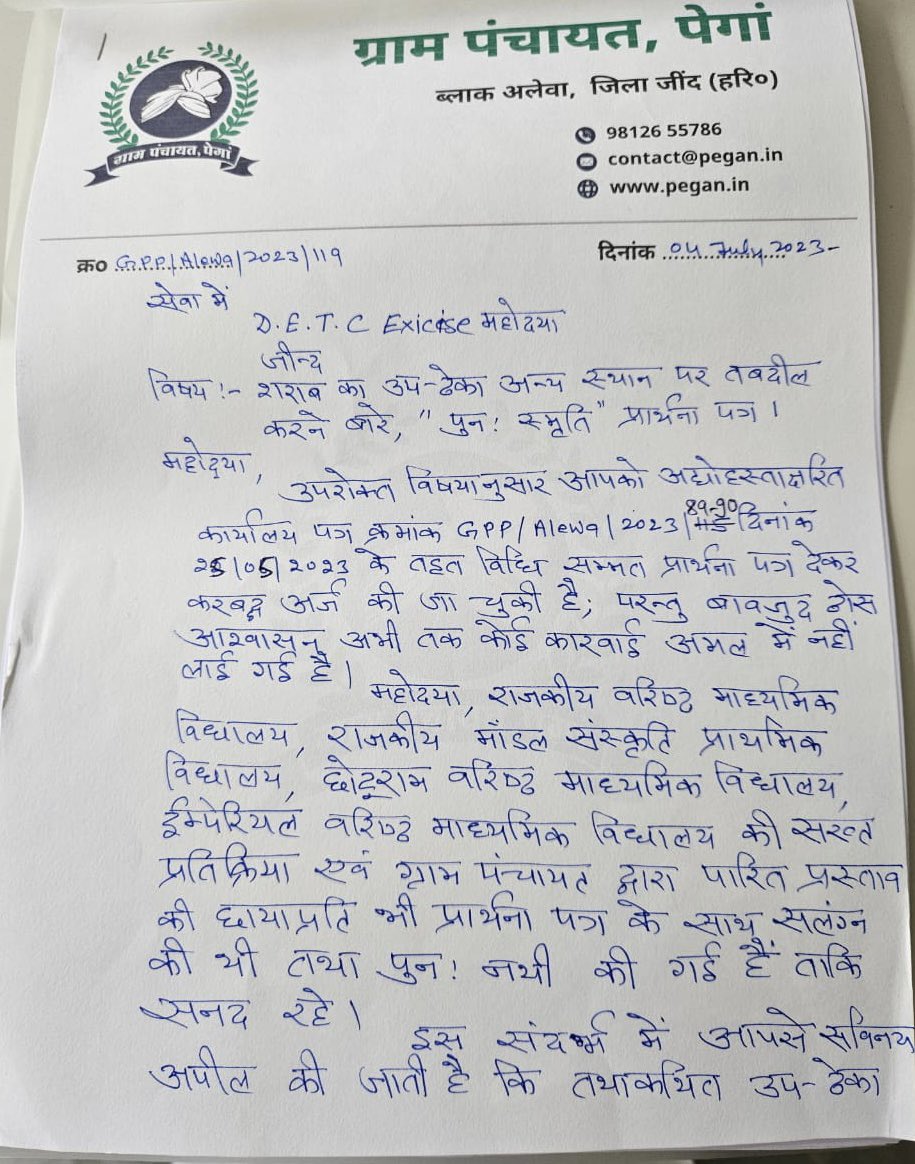 ग्राम पंचायत, पेगां
ब्लाक अलेवा, जिला जींद (हरि०)
98126 55786
contact@pegan.in
www.pegan.in
ग्राम पंचायत, पेगां
क्र० GPP/Alewa/2023/119
दिनांक 04 July 2023-
सेवा में
D.E.T.C Exicise महोदया
जीन्द
विषय :- शराब का उप-ठेका अन्य स्थान पर तबदील
करने बारे, "पुन: स्मृति" प्रार्थना पत्र ।
महोदया,
उपरोक्त विषयानुसार आपको अद्योहस्ताक्षरित
कार्यालय पत्र क्रमांक GPP/Alewa/2023/89-90 दिनांक
25/05/2023 के तहत विधि सम्मत प्रार्थना पत्र देकर
करबद्ध अर्ज की जा चुकी है; परन्तु बावजुद ठोस
आश्वासन अभी तक कोई कारवाई अमल में नहीं
लाई गई है।
महोदया, राजकीय वरिष्ठ माध्यमिक
विद्यालय, राजकीय मॉडल संस्कृति प्राथमिक
विद्यालय, छोटूराम वरिष्ठ माध्यमिक विद्यालय,
ईम्पेरियल वरिष्ठ माध्यमिक विद्यालय की सख्त
प्रतिक्रिया एवं ग्राम पंचायत द्वारा पारित प्रस्ताव
की छायाप्रति भी प्रार्थना पत्र के साथ सलंग्न
की थी तथा पुन: नथी की गई हैं ताकि
सनद रहे।
इस संदर्भ में आपसे सविनय
अपील की जाती है कि तथाकथित उप-ठेका